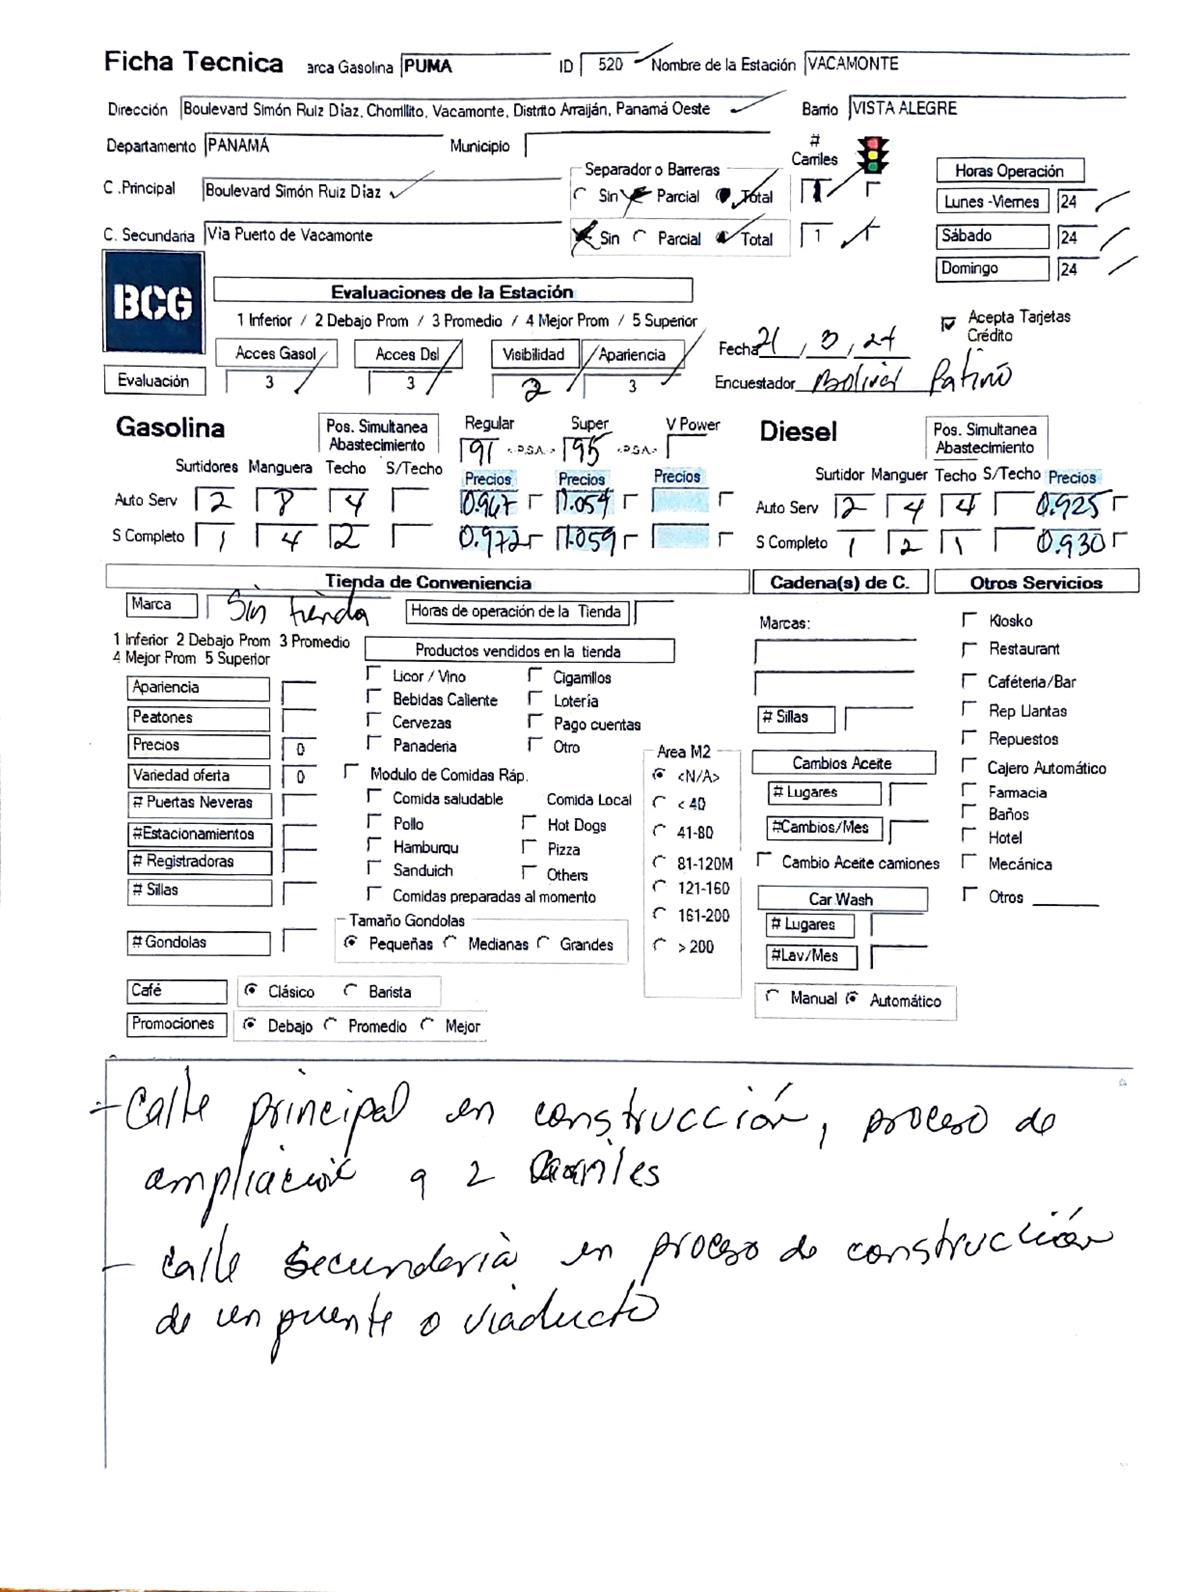 Ficha Tecnica arca Gasolina PUMA ID 520 Nombre de la Estación VACAMONTE
Dirección Boulevard Simón Ruiz Díaz, Chorrillito, Vacamonte, Distrito Arraiján, Panamá Oeste Barrio VISTA ALEGRE
Departamento PANAMÁ Municipio # Carriles
Separador o Barreras Horas Operación
C .Principal Boulevard Simón Ruiz Díaz Sin Parcial Total 1 Lunes -Viernes 24
C. Secundaria Vía Puerto de Vacamonte Sin Parcial Total 1 Sábado 24
Domingo 24
BCG
Evaluaciones de la Estación
1 Inferior / 2 Debajo Prom / 3 Promedio / 4 Mejor Prom / 5 Superior
Acepta Tarjetas Crédito
Acces Gasol Acces Dsl Visibilidad Apariencia Fecha 21, 3, 24
Evaluación 3 3 2 3 Encuestador Bolivar Patiño
Gasolina Pos. Simultanea Abastecimiento Regular Super V Power Diesel Pos. Simultanea Abastecimiento
91 <.P.S.A.> 95 <.P.S.A.>
Surtidores Manguera Techo S/Techo Precios Precios Precios Surtidor Manguer Techo S/Techo Precios
Auto Serv 2 8 4 0.967 1.054 Auto Serv 2 4 4 0.925
S Completo 1 4 2 0.972 1.059 S Completo 1 2 1 0.930
Tienda de Conveniencia Cadena(s) de C. Otros Servicios
Marca Sin tienda Horas de operación de la Tienda Marcas: Kiosko
1 Inferior 2 Debajo Prom 3 Promedio
4 Mejor Prom 5 Superior
Productos vendidos en la tienda Restaurant
Apariencia Licor / Vino Cigarrillos Caféteria/Bar
Bebidas Caliente Lotería
Peatones Cervezas Pago cuentas # Sillas Rep Llantas
Precios 0 Panaderia Otro Area M2 Repuestos
Variedad oferta 0 Modulo de Comidas Ráp. <N/A> Cambios Aceite Cajero Automático
# Puertas Neveras Comida saludable Comida Local < 40 # Lugares Farmacia
#Estacionamientos Pollo Hot Dogs 41-80 #Cambios/Mes Baños
Hamburqu Pizza Hotel
# Registradoras Sanduich Others 81-120M Cambio Aceite camiones Mecánica
# Sillas Comidas preparadas al momento 121-160 Car Wash Otros
Tamaño Gondolas 161-200 # Lugares
# Gondolas Pequeñas Medianas Grandes > 200 #Lav/Mes
Café Clásico Barista Manual Automático
Promociones Debajo Promedio Mejor
- Calle principal en construcción, proceso de
ampliación a 2 Carriles
- Calle Secundaria en proceso de construcción
de un puente o viaducto